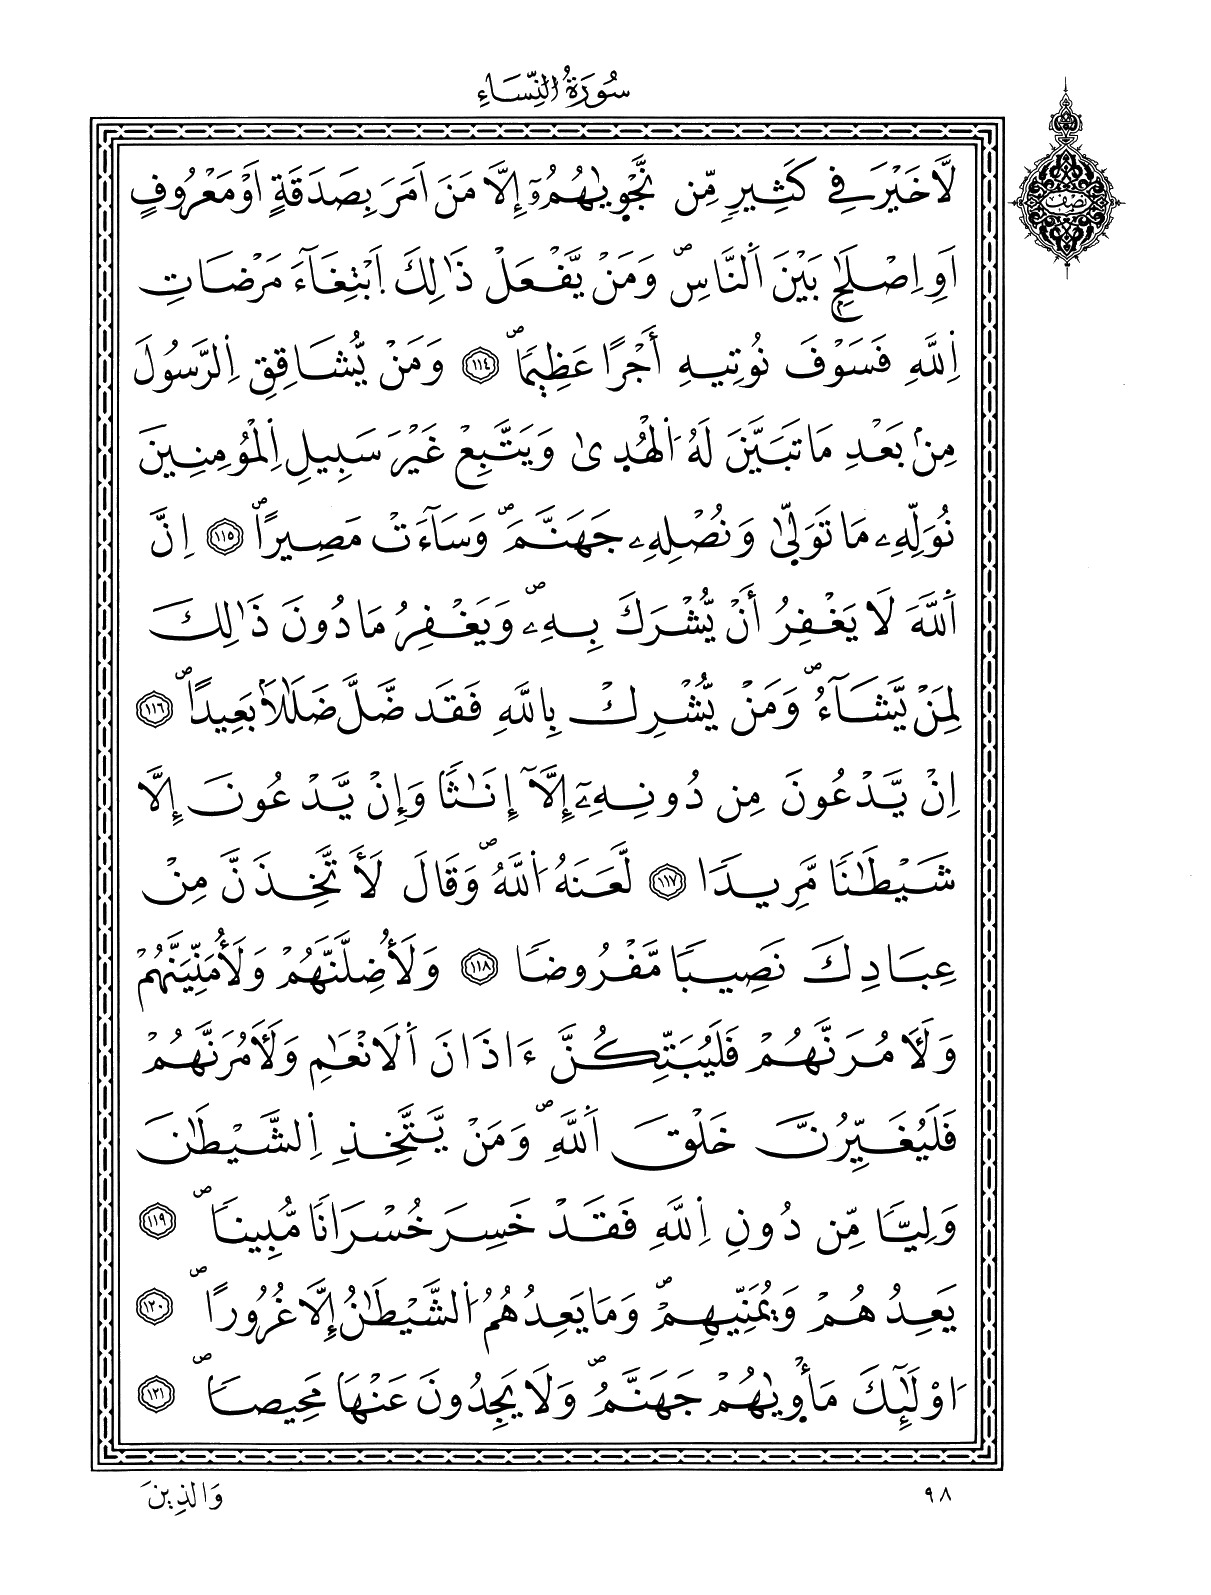 سُورَةُ النِّسَاءِ
نصف
لَّا خَيْرَ فِي كَثِيرٍ مِّن نَّجْوِيٰهُمُۥٓ إِلَّا مَنَ اَمَرَ بِصَدَقَةٍ اَوْ مَعْرُوفٍ
اَوِ اِصْلَٰحٍ بَيْنَ اَلنَّاسِۖ وَمَنْ يَّفْعَلْ ذَٰلِكَ اَبْتِغَآءَ مَرْضَاتِ
اِللَّهِ فَسَوْفَ نُوتِيهِ أَجْرًا عَظِيمًاۖ ١١٤ وَمَنْ يُّشَاقِقِ اِلرَّسُولَ
مِنۢ بَعْدِ مَا تَبَيَّنَ لَهُ اَلْهُدِىٰ وَيَتَّبِعْ غَيْرَ سَبِيلِ اِلْمُؤْمِنِينَ
نُوَلِّهِۦ مَا تَوَلِّىٰ وَنُصْلِهِۦ جَهَنَّمَۖ وَسَآءَتْ مَصِيرًاۖ ١١٥ اِنَّ
اَللَّهَ لَا يَغْفِرُ أَنْ يُّشْرَكَ بِهِۦۖ وَيَغْفِرُ مَا دُونَ ذَٰلِكَ
لِمَنْ يَّشَآءُۖ وَمَنْ يُّشْرِكْ بِاللَّهِ فَقَد ضَّلَّ ضَلَٰلًاۢ بَعِيدًاۖ ١١٦
اِنْ يَّدْعُونَ مِن دُونِهِۦٓ إِلَّآ إِنَٰثًا وَإِنْ يَّدْعُونَ إِلَّا
شَيْطَٰنًا مَّرِيدًا ١١٧ لَّعَنَهُ اَللَّهُۖ وَقَالَ لَأَتَّخِذَنَّ مِنْ
عِبَادِكَ نَصِيبًا مَّفْرُوضًا ١١٨ وَلَأُضِلَّنَّهُمْ وَلَأُمَنِّيَنَّهُمْ
وَلَأٓمُرَنَّهُمْ فَلَيُبَتِّكُنَّ ءَاذَانَ اَلَانْعَٰمِ وَلَأٓمُرَنَّهُمْ
فَلَيُغَيِّرُنَّ خَلْقَ اَللَّهِۖ وَمَنْ يَّتَّخِذِ اِلشَّيْطَٰنَ
وَلِيًّا مِّن دُونِ اِللَّهِ فَقَدْ خَسِرَ خُسْرَانًا مُّبِينًاۖ ١١٩
يَعِدُهُمْ وَيُمَنِّيهِمْۖ وَمَا يَعِدُهُمُ اَلشَّيْطَٰنُ إِلَّا غُرُورًاۖ ١٢٠
اَوْلَٰٓئِكَ مَأْوِيٰهُمْ جَهَنَّمُۖ وَلَا يَجِدُونَ عَنْهَا مَحِيصًاۖ ١٢١
٩٨
وَالذِينَ